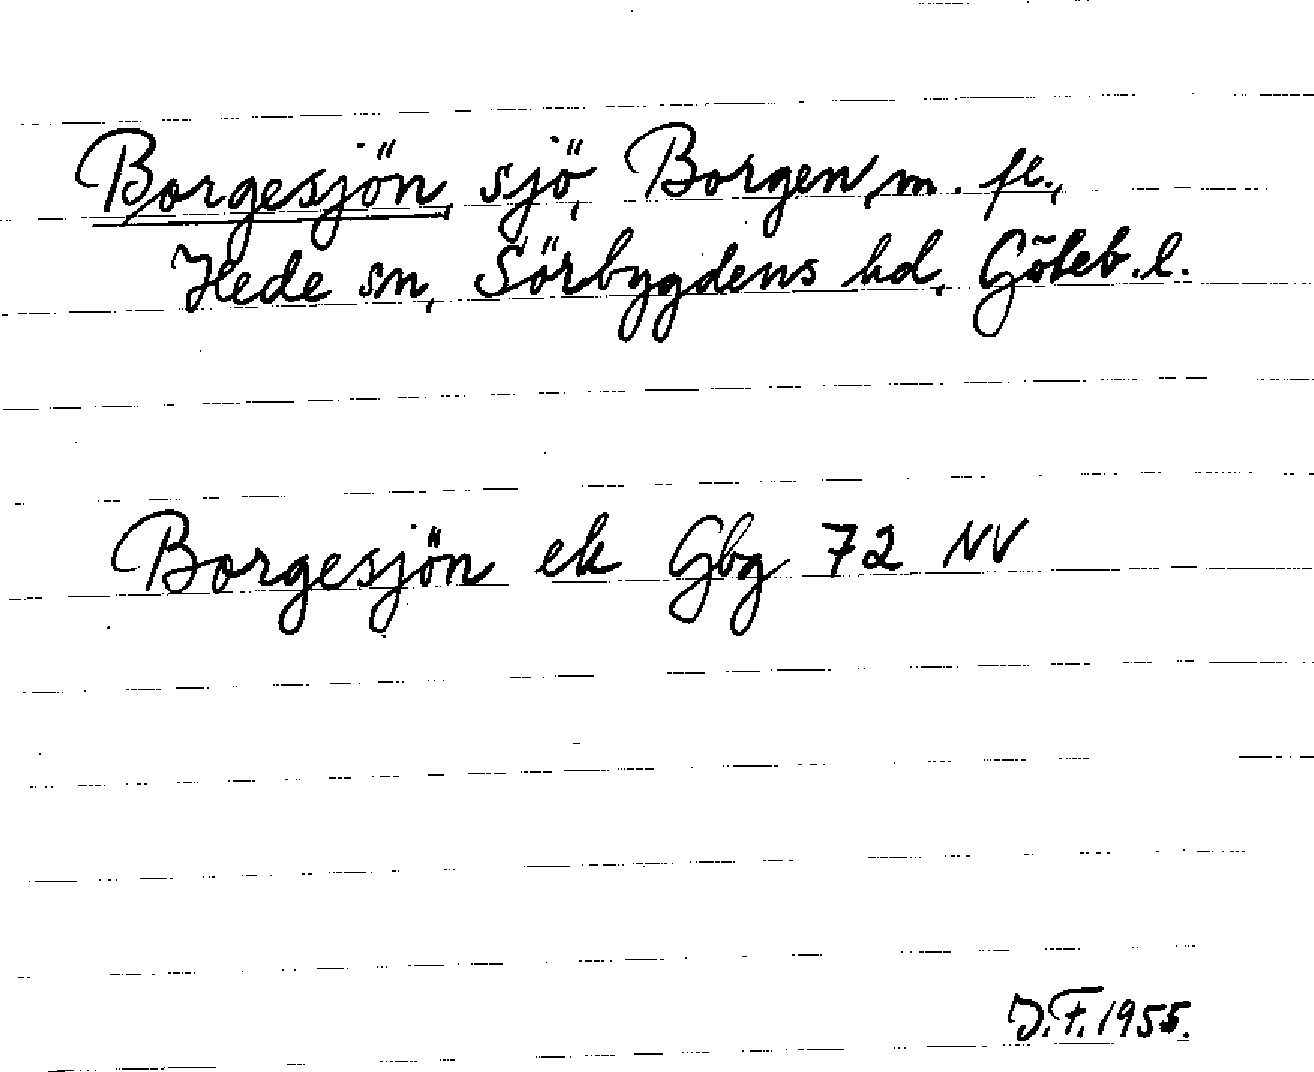 Borgesjön, sjö, Borgen m. fl.,
Hede sn, Sörbygdens hd, Göteb. l.
Borgesjön ek Gbg 72 NV
J.F. 1955.